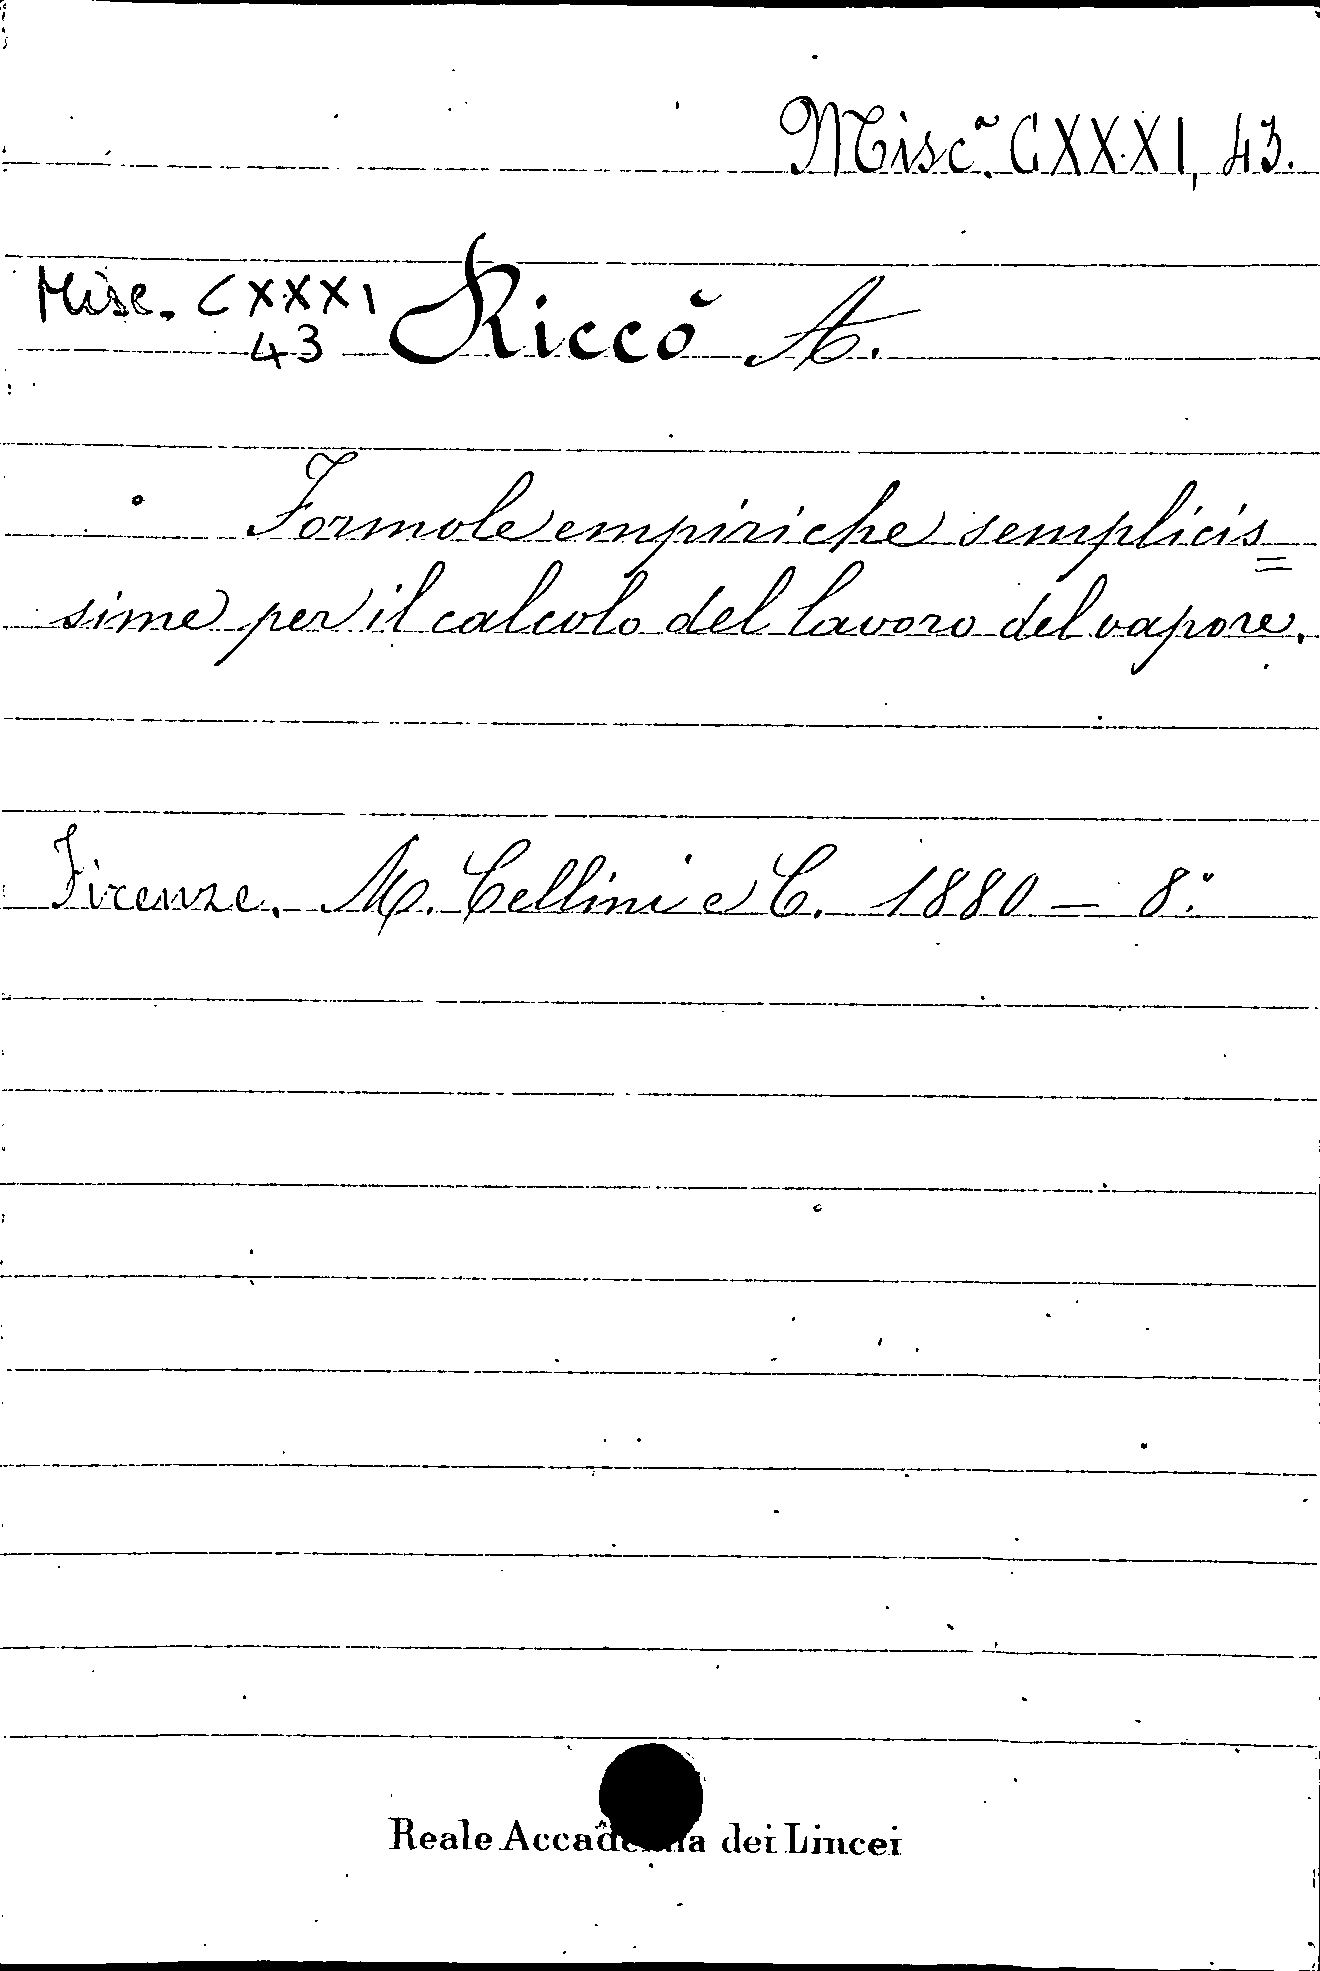 Misc.ª CXXXI, 43.
Misc. CXXXI
43
Riccò A.
Formole empiriche semplicis=
sime per il calcolo del lavoro del vapore.
Firenze. M. Cellini e C. 1880 — 8.°
Reale Accademia dei Lincei